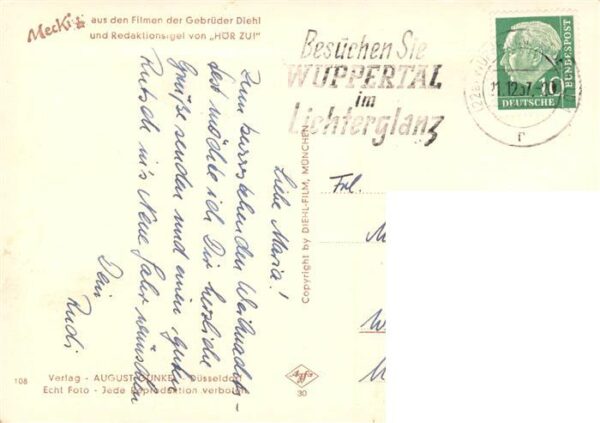 Mecki aus den Filmen der Gebrüder Diehl
und Redaktionsigel von „HÖR ZU!"
Besuchen Sie
WUPPERTAL
im
Lichterglanz
11.12.57
DEUTSCHE
BUNDESPOST
10
Liebe Maria!
Zum bevorstehenden Weihnachts-
fest möchte ich Dir herzliche
Grüße senden und einen guten
Rutsch in's Neue Jahr wünschen
Dein
Rudi
Copyright by DIEHL-FILM, MÜNCHEN
Frl.
M
W
M
108
Verlag - AUGUST GUNKEL - Düsseldorf
Echt Foto - Jede Reproduktion verboten
Agfa
30